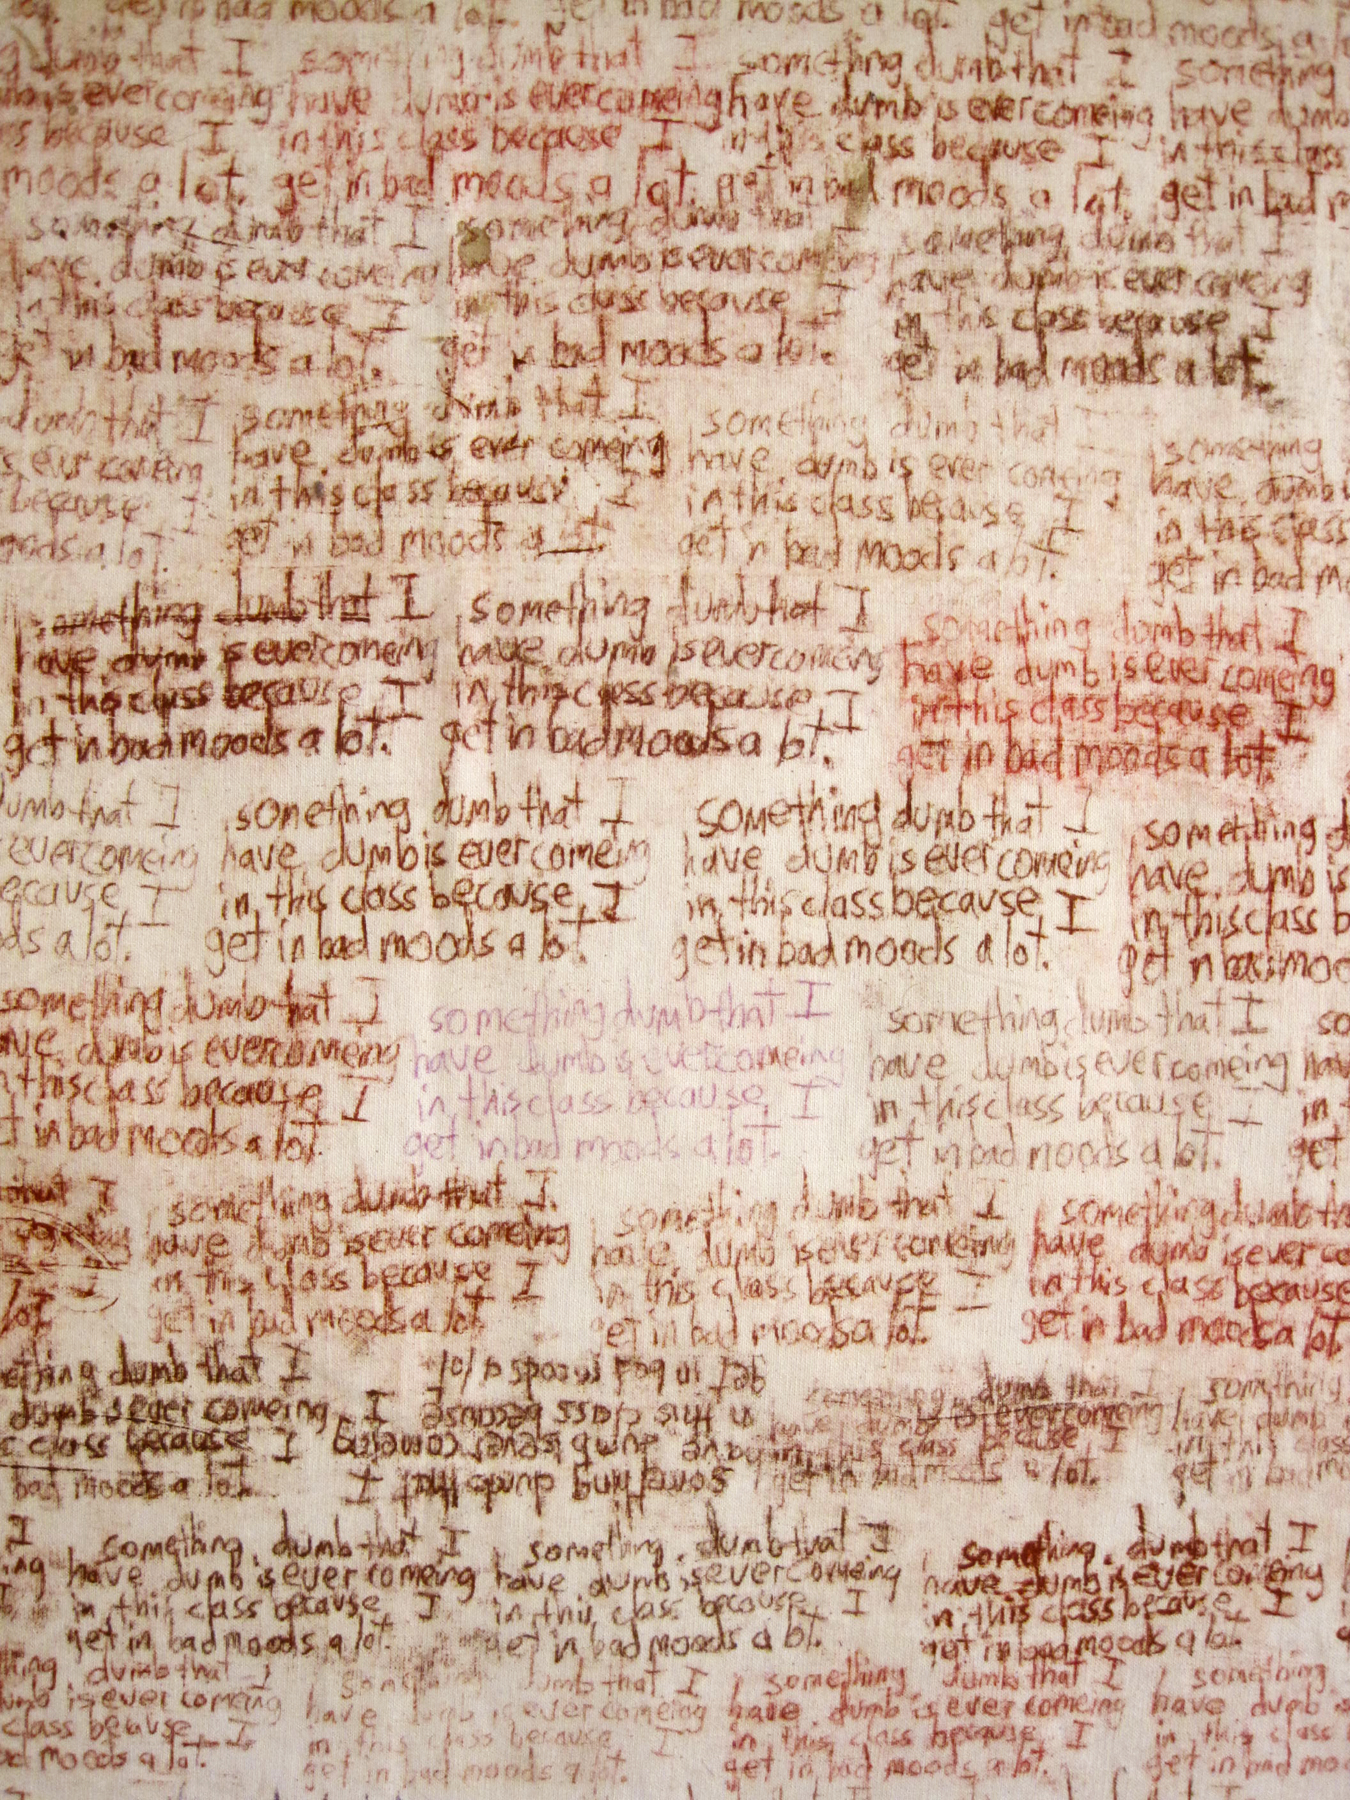 get in bad moods a lot. get in bad moods a lot. get in bad moods a lot
dumb that I something dumb that I something dumb that I something
is ever comeing have dumb is ever comeing have dumb is ever comeing have dumb
because I in this class because I in this class because I in this class
moods a lot. get in bad moods a lot. get in bad moods a lot. get in bad
something dumb that I something dumb that something dumb that I
have dumb is ever comeing have dumb is ever comeing have dumb is ever comeing
in this class because I in this class because I in this class because I
get in bad moods a lot. get in bad moods a lot. get in bad moods a lot.
dumb that I something dumb that I something dumb that I something
is ever comeing have dumb is ever comeing have dumb is ever comeing have dumb
because I in this class because I in this class because I in this class
moods a lot. get in bad moods a lot. get in bad moods a lot. get in bad
something dumb that I something dumb that I something dumb that I
have dumb is ever comeing have dumb is ever comeing have dumb is ever comeing
in this class because I in this class because I in this class because I
get in bad moods a lot. get in bad moods a lot. get in bad moods a lot.
dumb that I something dumb that I something dumb that I something
ever comeing have dumb is ever comeing have dumb is ever comeing have dumb is
because I in this class because I in this class because I in this class
a lot. get in bad moods a lot. get in bad moods a lot. get in bad
something dumb that I something dumb that I something dumb that I
have dumb is ever comeing have dumb is ever comeing have dumb is ever comeing
in this class because I in this class because I in this class because I in
get in bad moods a lot. get in bad moods a lot. get in bad moods a lot. get
that I something dumb that I something dumb that I something dumb
have dumb is ever comeing have dumb is ever comeing have dumb is ever
in this class because I in this class because I in this class because
lot get in bad moods a lot. get in bad moods a lot. get in bad moods a lot.
something dumb that I get in bad moods a lot something dumb that I something
dumb is ever comeing in this class because I have dumb is ever comeing have dumb
class because I have dumb is ever comeing in this class because I in this class
bad moods a lot. something dumb that I get in bad moods a lot. get in bad
I something dumb that I something dumb that I something dumb that I
have dumb is ever comeing have dumb is ever comeing have dumb is ever comeing
in this class because I in this class because I in this class because I
get in bad moods a lot. get in bad moods a lot. get in bad moods a lot.
dumb that I something dumb that I something dumb that I something
is ever comeing have dumb is ever comeing have dumb is ever comeing have dumb
class because I in this class because I in this class because I in this class
moods a lot. get in bad moods a lot. get in bad moods a lot. get in bad